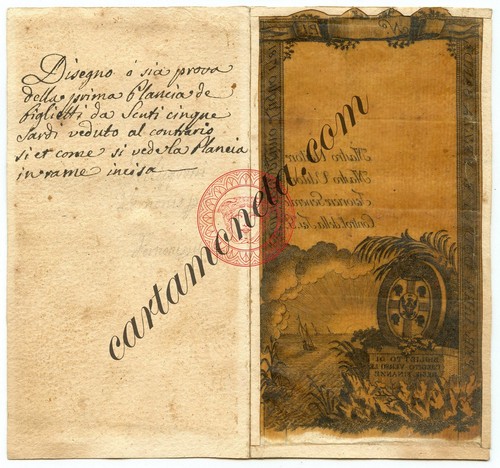 Disegno ó sia prova
della prima Plancia de
Biglietti da Scuti cingue
Sardi veduto al contrario
si et come si vede la Plancia
in rame incisa
cartamoneta.com
Mastro
Mastro
Controll della
BIGLIETTO DI
CREDITO VERSO LE
REGIE FINANZE